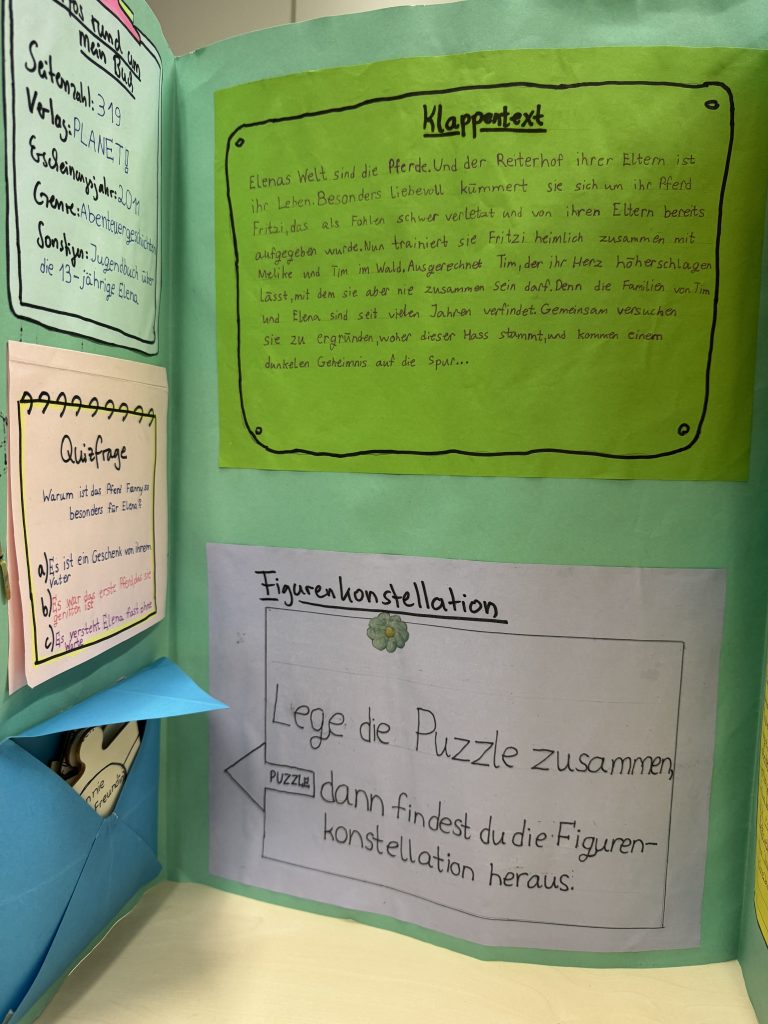 rund um
mein Buch
Seitenzahl: 319
Verlag: PLANET!
Erscheinungsjahr: 2011
Genre: Abenteuergeschichten
Sonstiges: Jugendbuch über
die 13-jährige Elena
Quizfrage
Warum ist das Pferd so
besonders für Elena?
a) Es ist ein Geschenk von ihrem
Vater
b) Es war das erste Pferd, das sie
geritten ist
c) Es versteht Elena fast ohne
Worte
nie
Freundi
Klappentext
Elenas Welt sind die Pferde. Und der Reiterhof ihrer Eltern ist
ihr Leben. Besonders liebevoll kümmert sie sich um ihr Pferd
Fritzi, das als Fohlen schwer verletzt und von ihren Eltern bereits
aufgegeben wurde. Nun trainiert sie Fritzi heimlich zusammen mit
Melike und Tim im Wald. Ausgerechnet Tim, der ihr Herz höherschlagen
lässt, mit dem sie aber nie zusammen sein darf. Denn die Familien von Tim
und Elena sind seit vielen Jahren verfindet. Gemeinsam versuchen
sie zu ergründen, woher dieser Hass stammt, und kommen einem
dunkelen Geheimnis auf die Spur...
Figurenkonstellation
Lege die Puzzle zusammen,
PUZZLE
dann findest du die Figuren-
konstellation heraus.